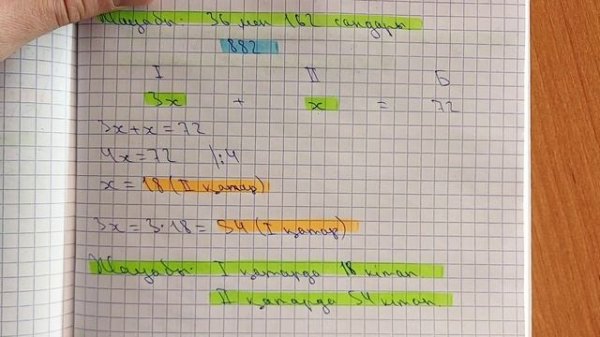 Жауабы: 36 мен 162 сандары.
882
I II Б
3x + x = 72
3x+x=72
4x=72 |:4
x = 18 (II қатар)
3x = 3·18 = 54 (I қатар)
Жауабы: I қатарда 18 кітап
II қатарда 54 кітап.